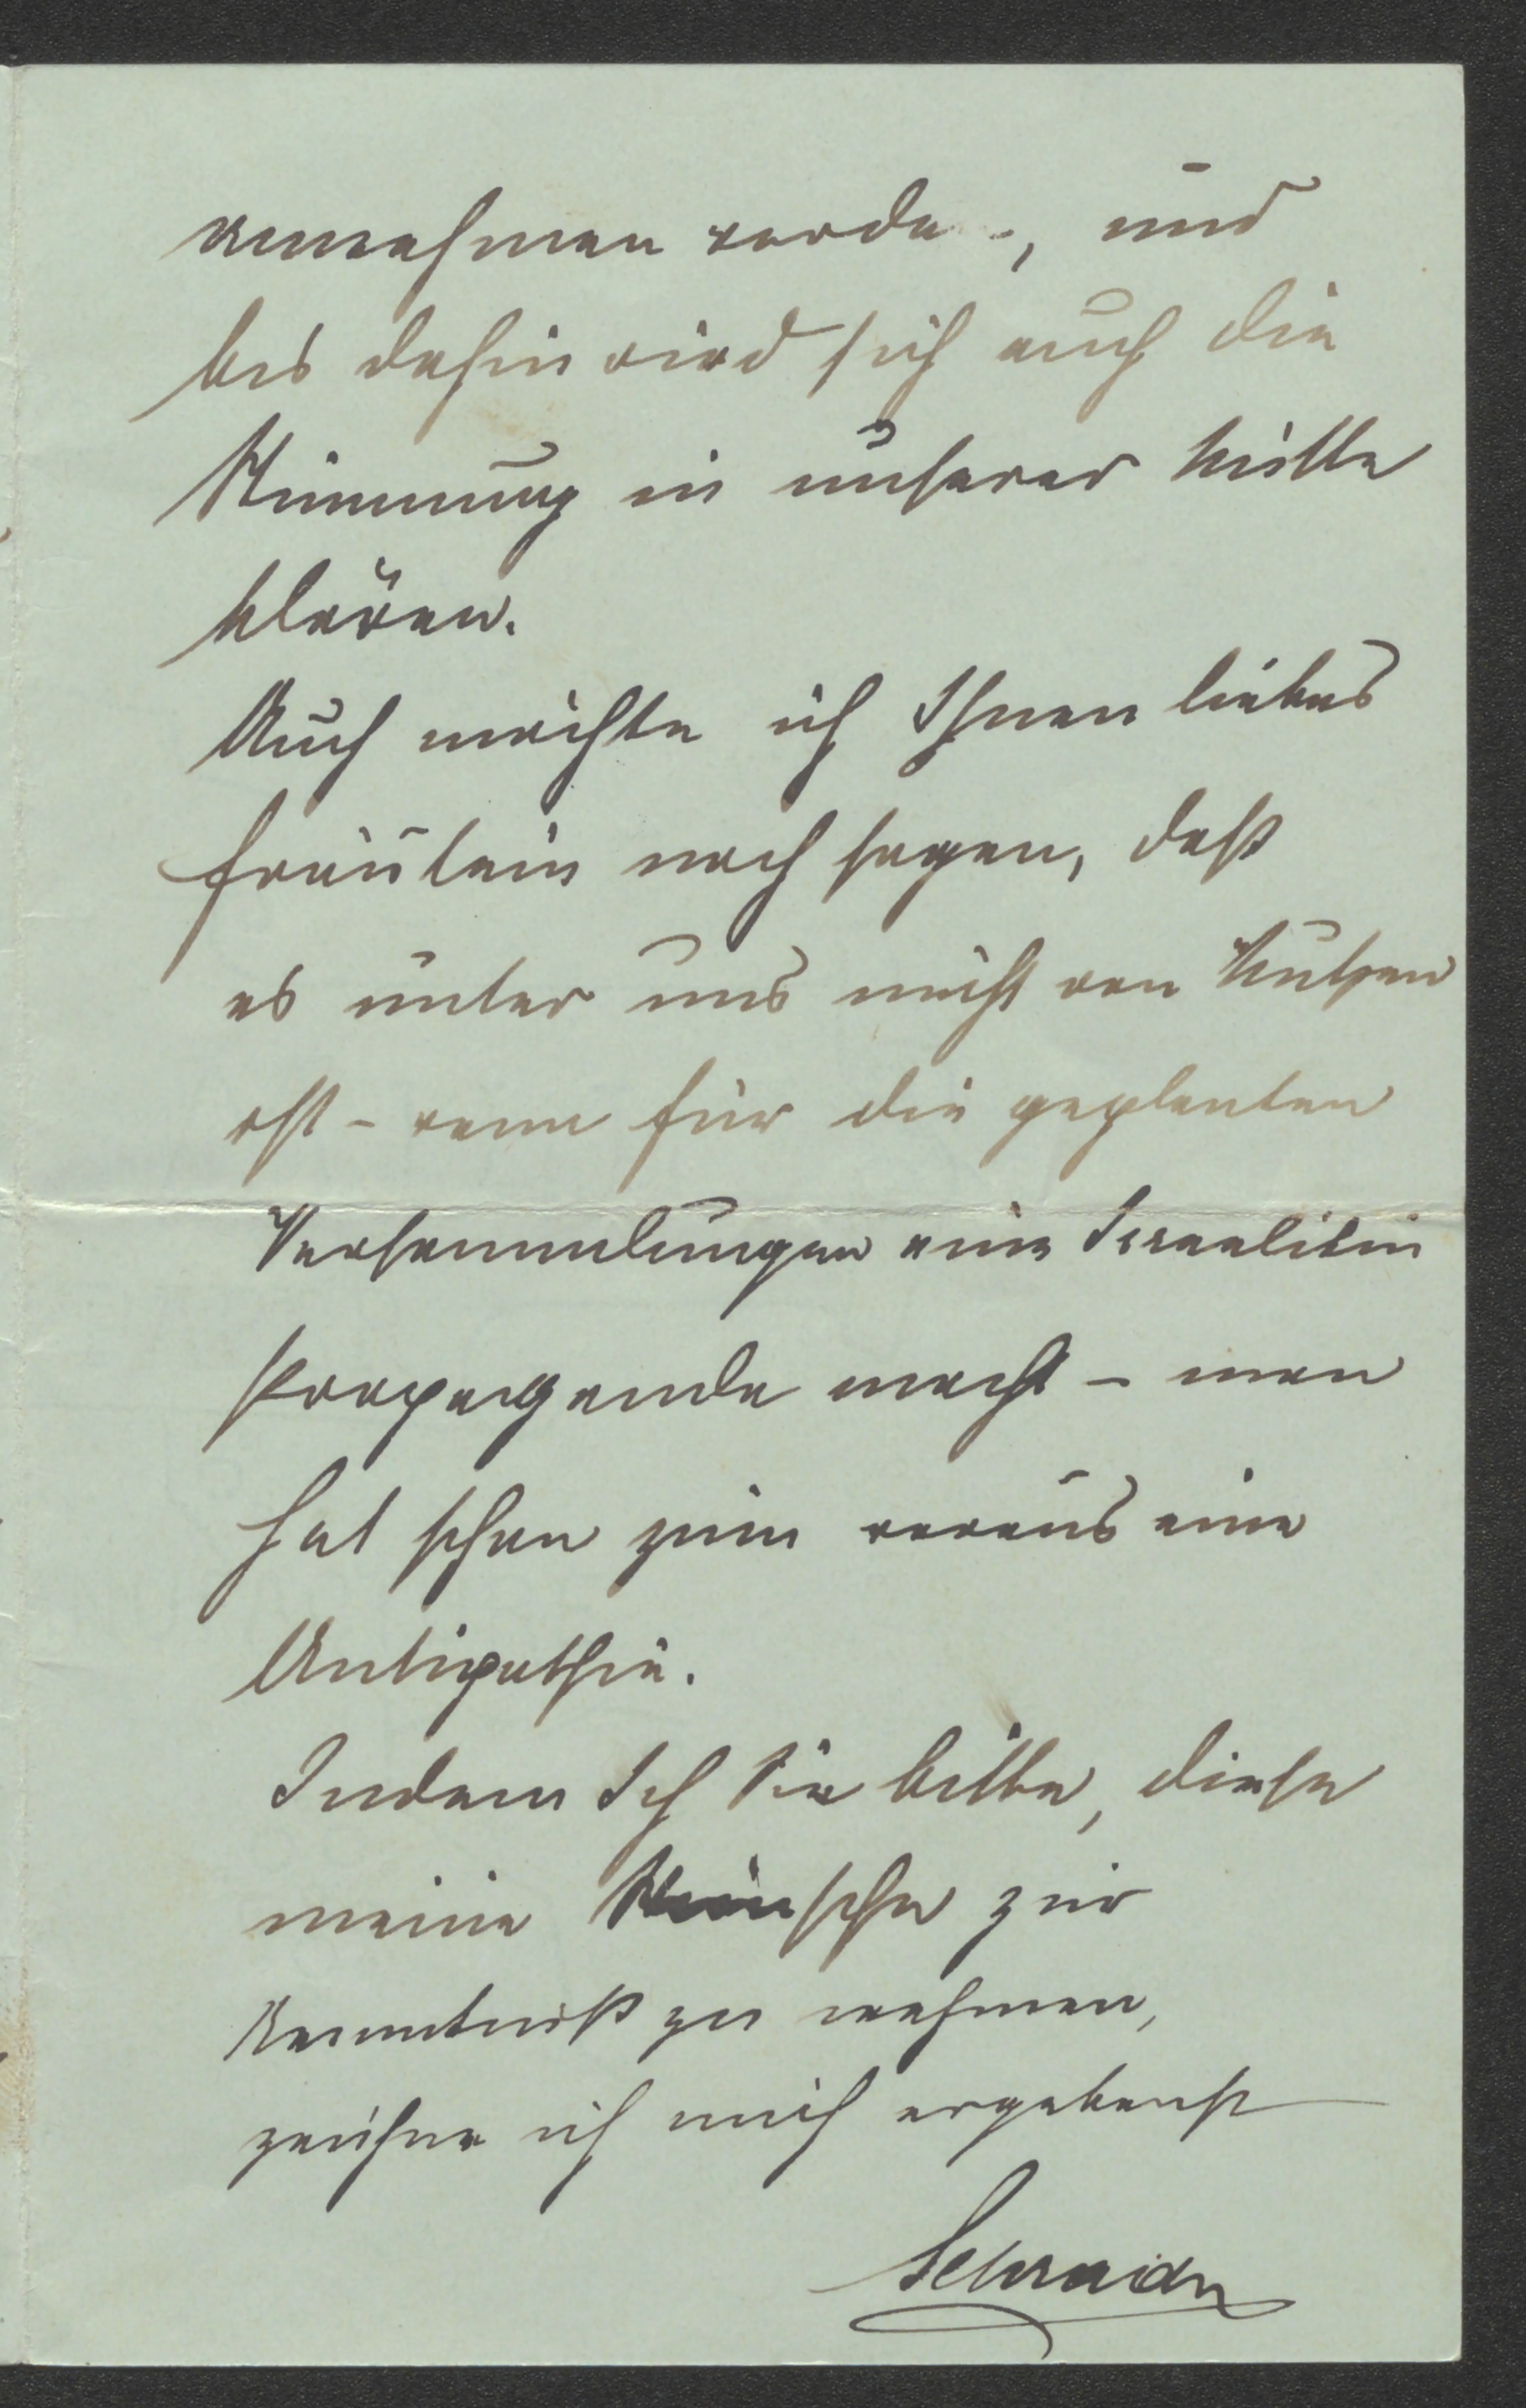 annehmen werde -, und
bis dahin wird sich auch die
Stimmung in unserer Mitte
klären.
Auch möchte ich Ihnen liebes
Fräulein noch sagen, daß
es unter uns nicht von Nutzen
ist - wenn für die geplanten
Versammlungen eine Israelitin
Propaganda macht - man
hat schon zum voraus eine
Antipathie.
Indem Ich Sie bitte, diese
meine Wünsche zur
Kenntniß zu nehmen,
zeichne ich mich ergebenst